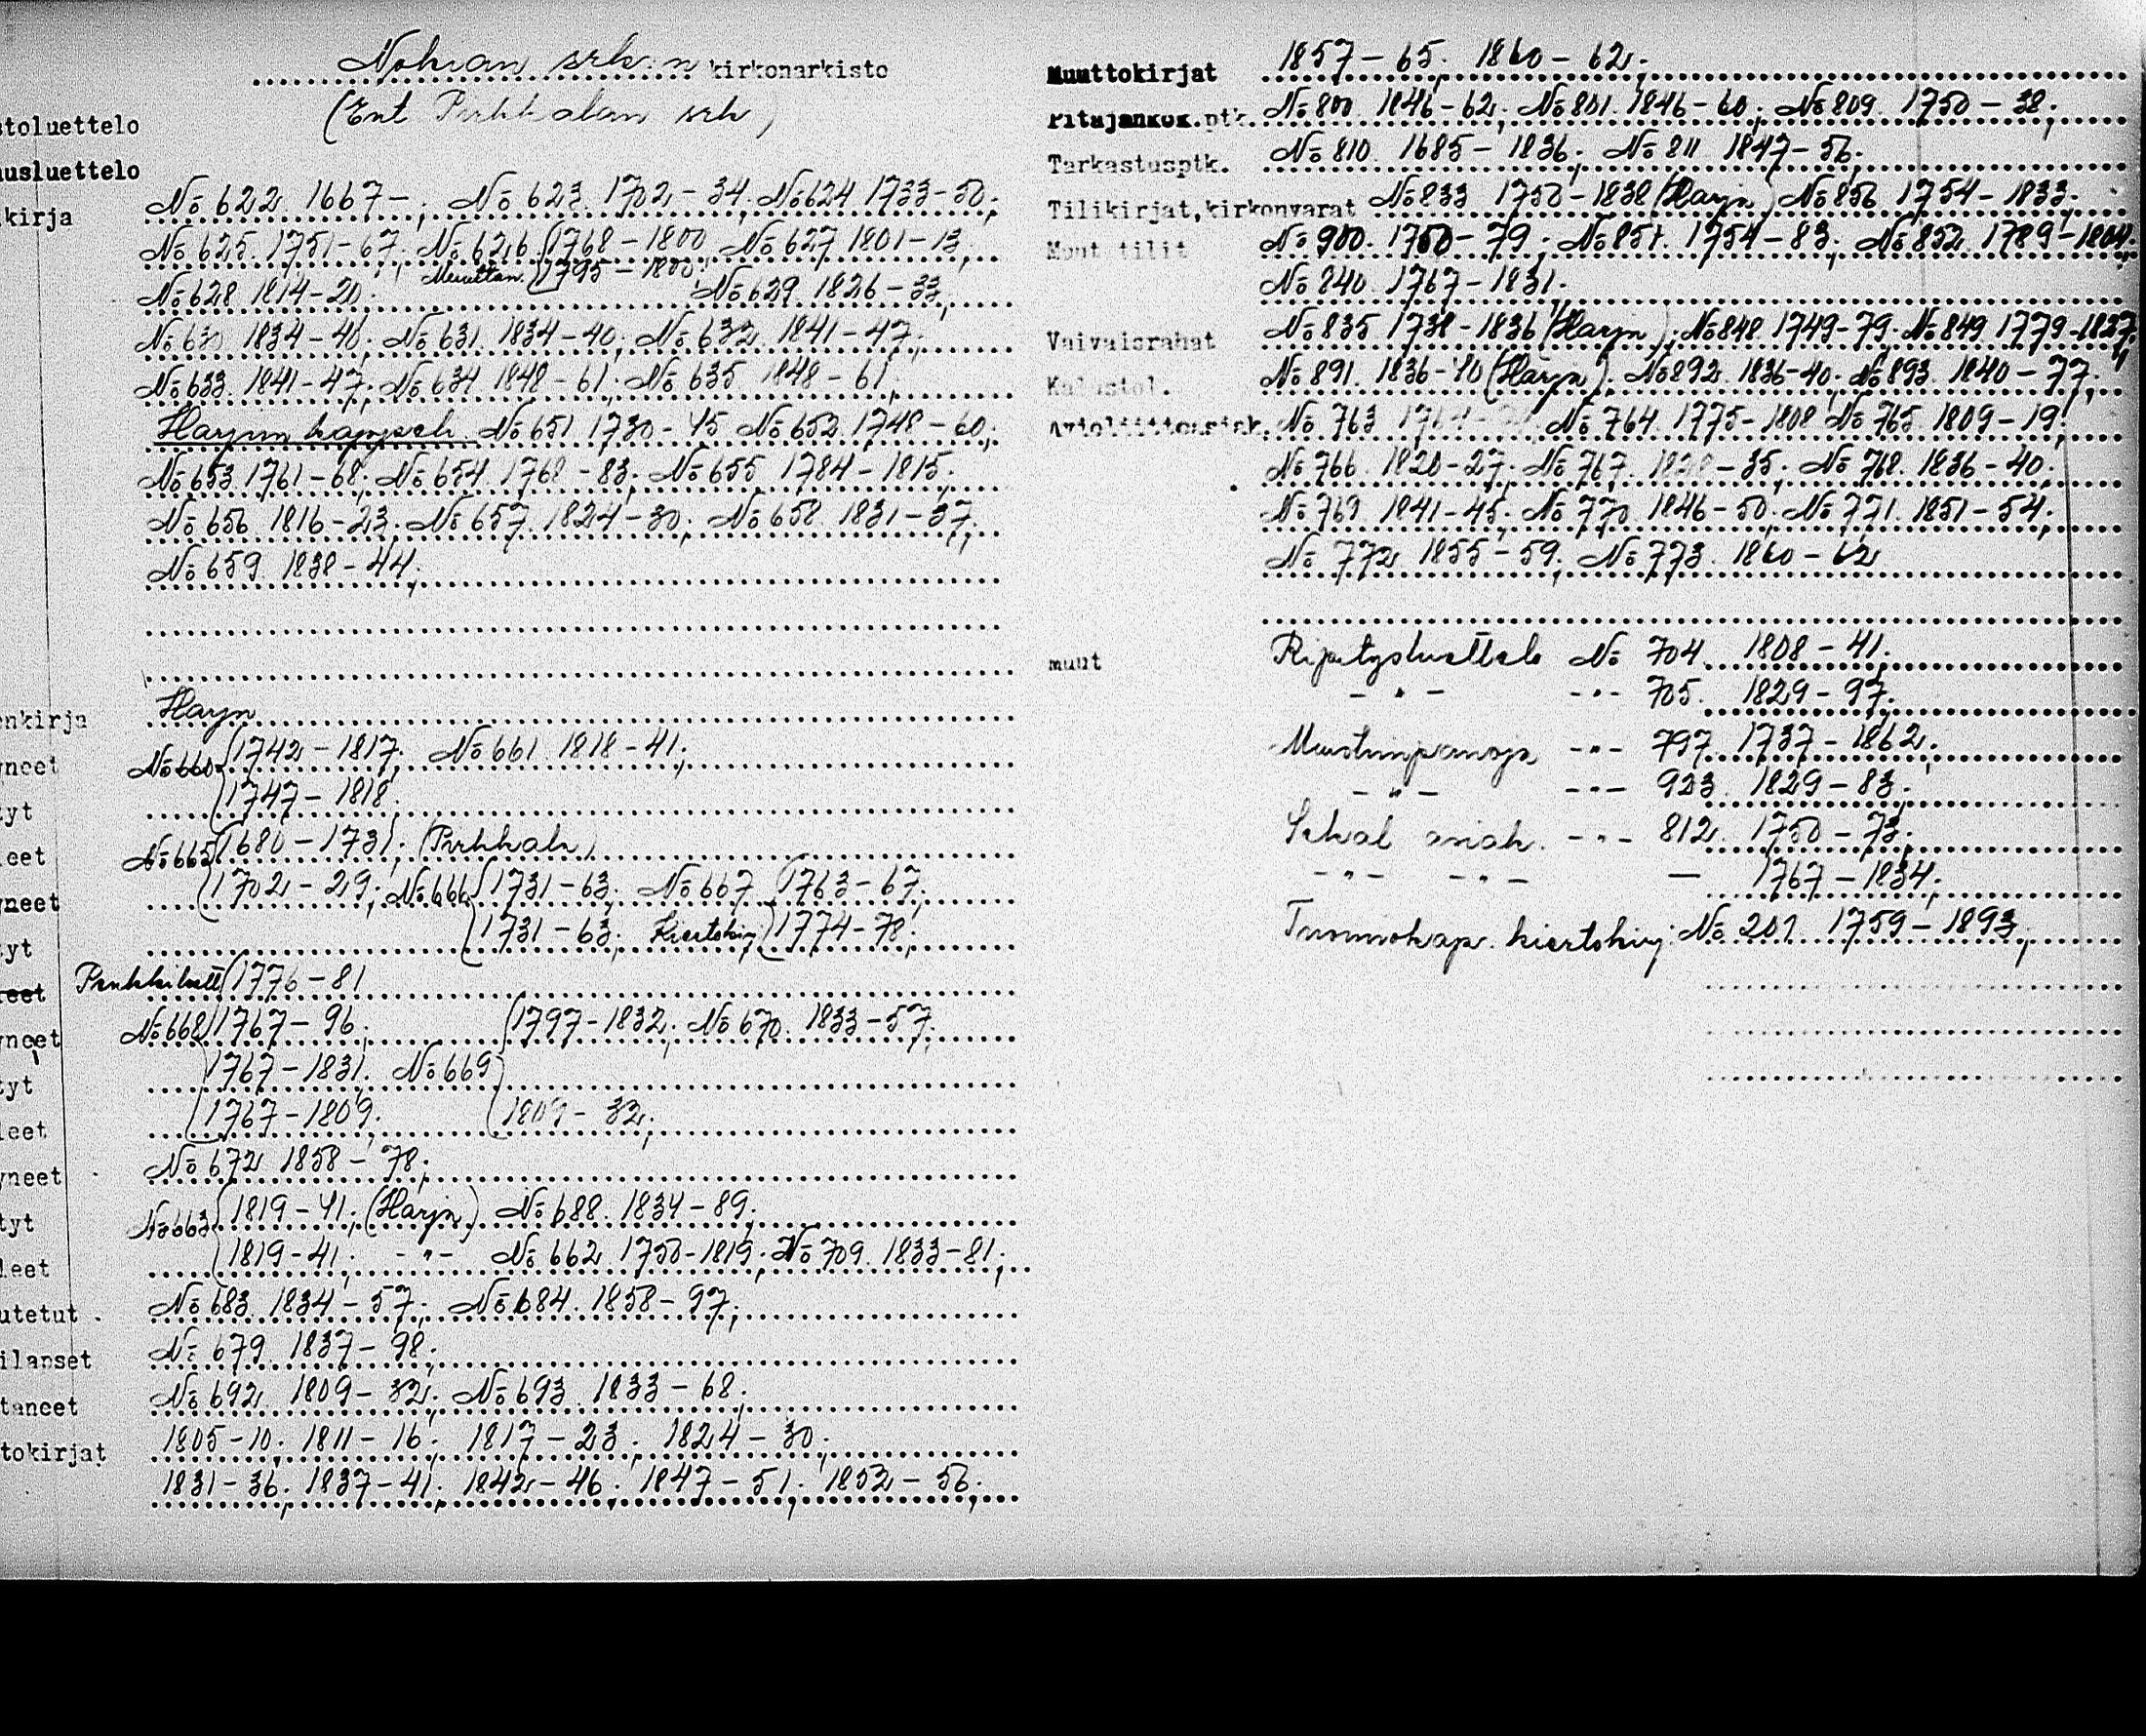 Nokian srk:n kirkonarkisto
(Ent Pirkkalan srk)
stoluettelo
usluettelo
kirja No 622 1667-; No 623. 1702-34; No 624 1733-50;
No 625. 1751-67; No 626 1768-1800 No 627 1801-13;
Muuttan. 1795-1800;
No 628 1814-20; No 629. 1826-33;
No 630 1834-40; No 631. 1834-40; No 632. 1841-47;
No 633. 1841-47; No 634 1848-61; No 635 1848-61;
Harjun kappsek. No 651 1730-45 No 652. 1748-60;
No 653. 1761-68; No 654. 1768-83; No 655 1784-1815;
No 656 1816-23; No 657. 1824-30; No 658. 1831-37;
No 659 1838-44;
nkirja Harjn
yneet No 660 1742-1817; No 661. 1818-41;
yt 1747-1818.
leet No 665 1680-1731; (Pirkkala)
yneet 1702-29; No 666 1731-63; No 667 1763-67;
yt 1731-63; Kiertokirj 1774-78;
leet Penkkiluett 1776-81
yneet No 668 1767-96; 1797-1832; No 670. 1833-57;
tyt 1767-1831. No 669
leet 1767-1809; 1809-32;
yneet No 672 1858-78;
tyt No 663 1819-41; (Harjn) No 688. 1834-89;
leet 1819-41; -"- No 662 1750-1819; No 709. 1833-81;
utetut No 683. 1834-57; No 684. 1858-97;
ilapset No 679 1837-98;
taneet No 692. 1809-32; No 693. 1833-68;
tokirjat 1805-10; 1811-16; 1817-23; 1824-30;
1831-36; 1837-41; 1842-46; 1847-51; 1852-56;
Muuttokirjat 1857-65; 1860-62;
Pitäjänkok.ptk. No 800. 1846-62; No 801. 1846-60; No 809. 1750-38;
Tarkastusptk. No 810. 1685-1836; No 811 1847-56;
Tilikirjat, kirkonvarat No 833 1750-1838 (Harjn) No 850 1754-1833;
Muut tilit No 900. 1750-79; No 851. 1754-83; No 852. 1789-1804;
No 840 1767-1831.
Vaivaisrahat No 835 1738-1836 (Harjn); No 848. 1749-79; No 849 1779-1827;
Kalustol. No 891. 1836-40 (Harjn); No 892. 1836-40; No 893. 1840-77;
Avioliittoasiak. No 763 No 764. 1775-1808 No 765. 1809-19;
No 766. 1820-27; No 767. 1828-35; No 768. 1836-40;
No 769. 1841-45; No 770 1846-50; No 771. 1851-54;
No 772 1855-59; No 773. 1860-62
muut Ripitysluettelo No 704. 1808-41.
-"- -"- 705. 1829-97.
Muistiinpanoja -"- 797. 1737-1862;
-"- -"- 923 1829-83;
Sekal asiak. -"- 812. 1750-73;
-"- -"- — 1767-1834;
Tuomiokap. kiertokirj: No 201. 1759-1893;